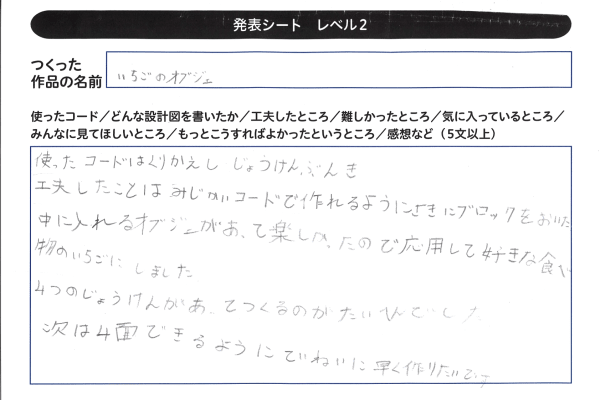 発表シート レベル2
つくった
作品の名前
いちごのオブジェ
使ったコード／どんな設計図を書いたか／工夫したところ／難しかったところ／気に入っているところ／
みんなに見てほしいところ／もっとこうすればよかったというところ／感想など（5文以上）
使った コードはくりかえし じょうけんぶんき
工夫したことは みじかいコードで作れるようにさきにブロックをおいた
中に入れるオブジェがあって楽しかったので応用して好きな食べ
物のいちごに しました
4つのじょうけんがあってつくるのがたいへんでした
次は4面できるようにていねいに早く作りたいです